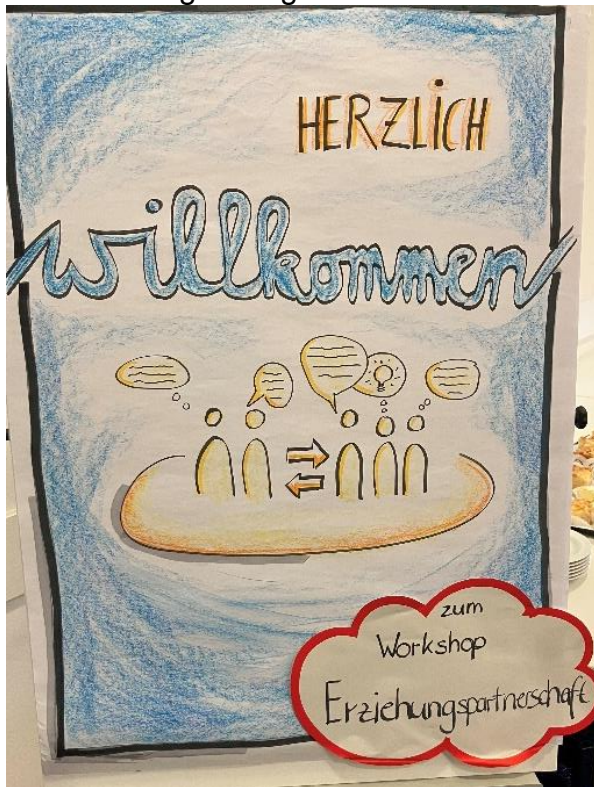 HERZLICH
willkommen
zum
Workshop
Erziehungspartnerschaft